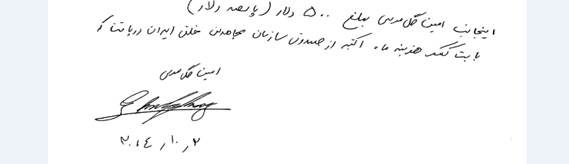 اینجانب امین گل مریمی مبلغ ۵۰۰ دلار (پانصد دلار)
بابت کمک هزینه ماه اکتبر از صندوق سازمان مجاهدین خلق ایران دریافت کردم
امین گل مریمی
۲ ر ۱۰ ر ۲۰۱٤